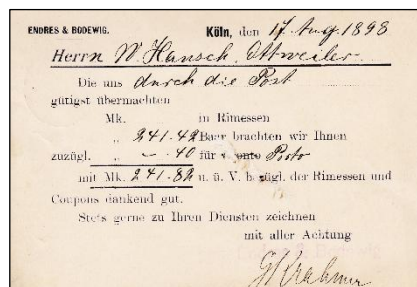 ENDRES & BODEWIG. Köln, den 17. Aug. 1898
Herrn W. Hansch, Ottweiler
Die uns durch die Post
gütigst übermachten
Mk. in Rimessen
„ 241.42 Baar brachten wir Ihnen
zuzügl. „ —.40 für Porto
mit Mk. 241.82 u. ü. V. bezügl. der Rimessen und
Coupons dankend gut.
Stets gerne zu Ihren Diensten zeichnen
mit aller Achtung